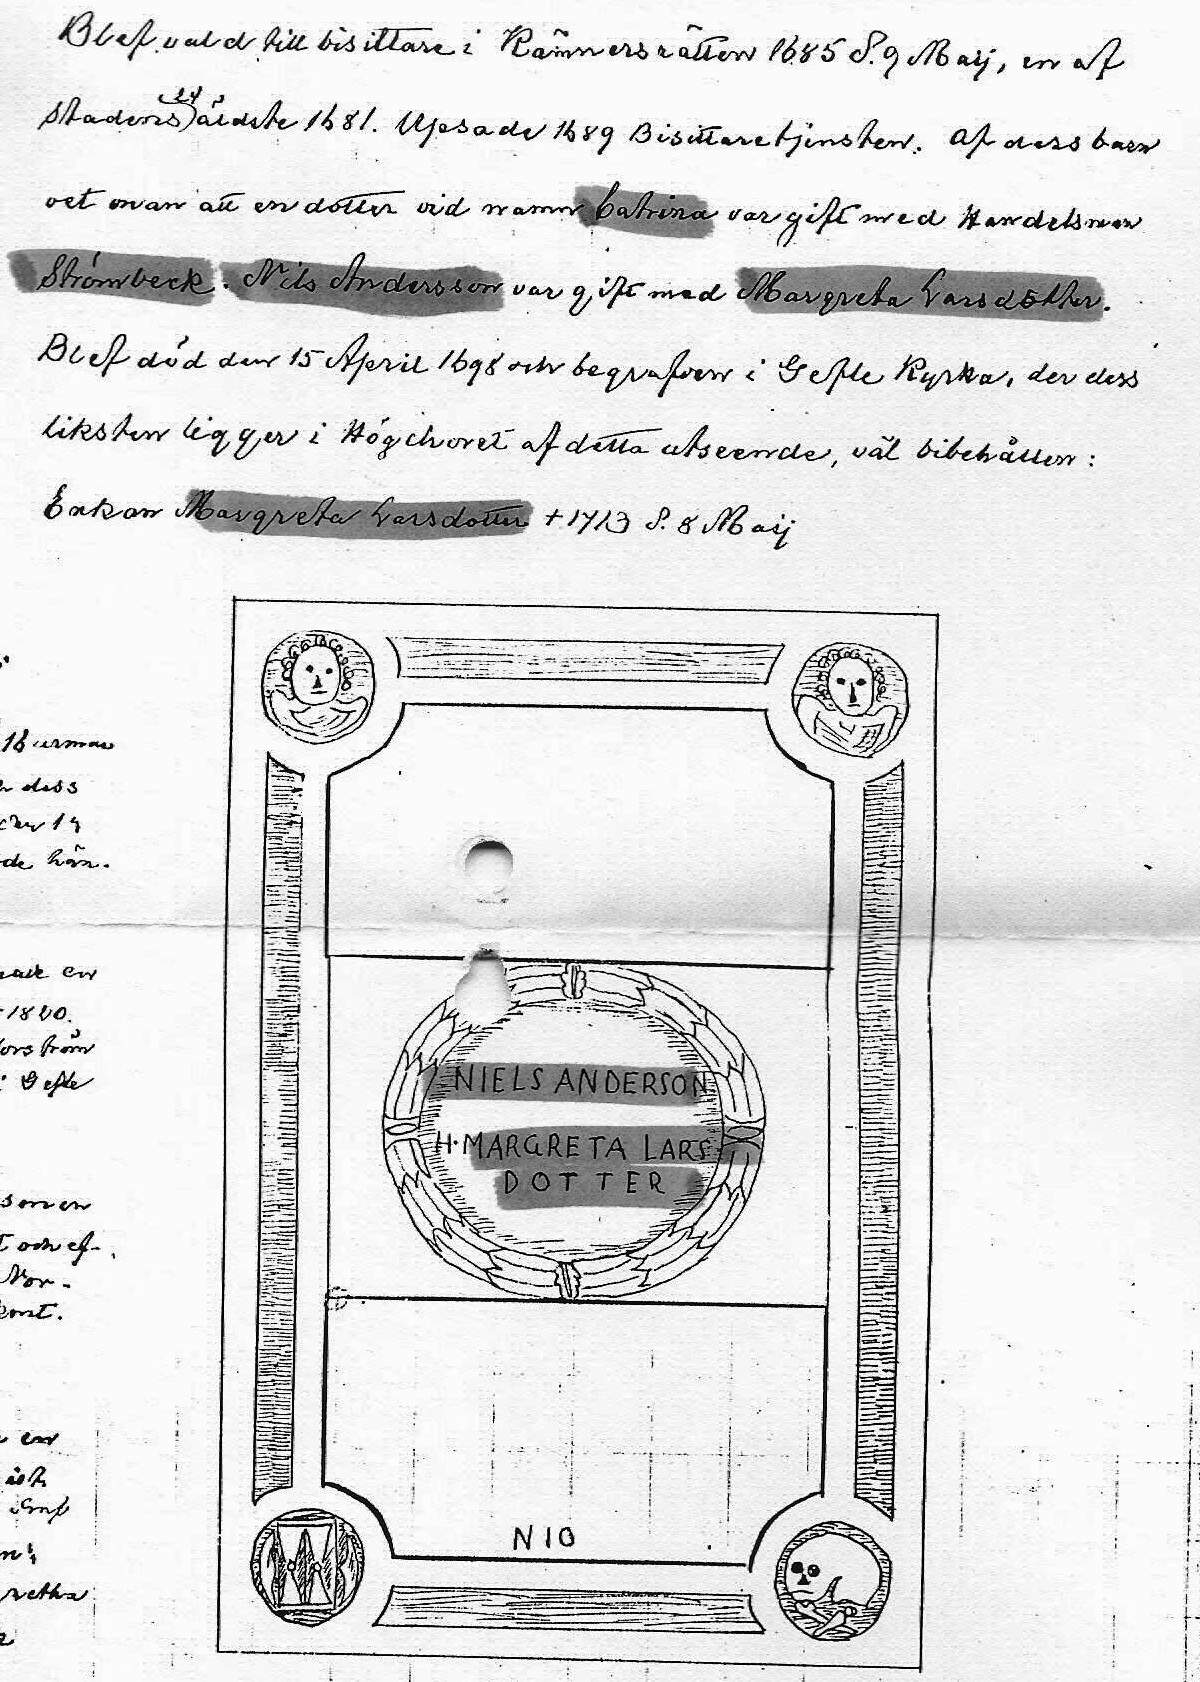 Blef vald till bisittare i Kämnersrätten 1685 d. 9 Maij, en af
stadens 24 äldste 1681. Upsade 1689 Bisittaretjensten. Af dess barn
vet man att en dotter vid namn Catrina var gift med Handelsman
Strömbeck. Nils Andersson var gift med Margreta Larsdotter.
Blef död den 15 April 1698 och begrafven i Gefle Kyrka, der dess
liksten ligger i Högchoret af detta utseende, väl bibehållen:
Enkan Margreta Larsdotter + 1713 d. 8 Maij
dess
de hän.
en
1820.
Gefle
som en
t och ef-
Nor-
en
NIELS ANDERSON
H. MARGRETA LARS
DOTTER
N 10